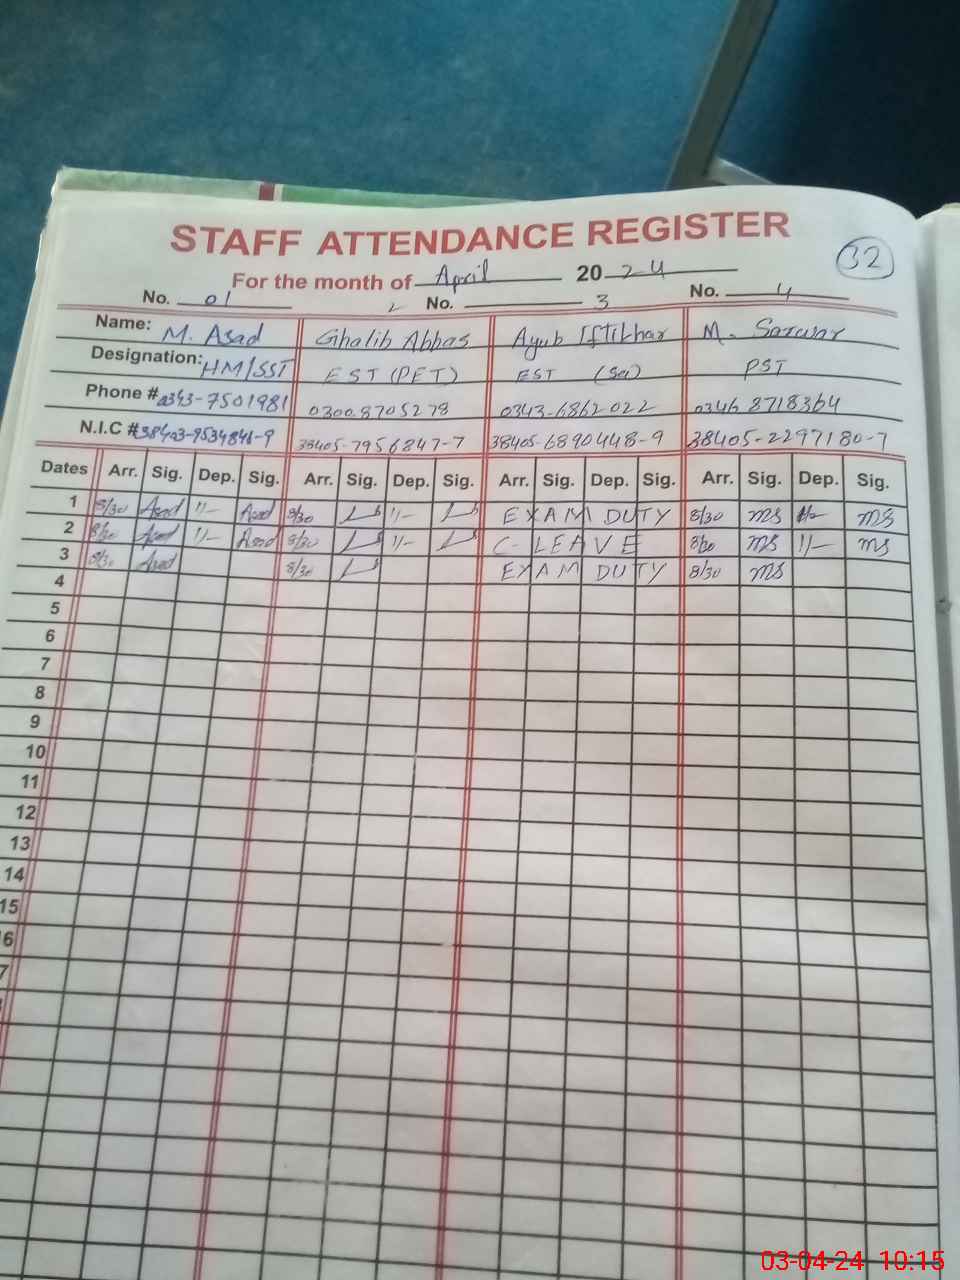 STAFF ATTENDANCE REGISTER
32
For the month of April 2024
No. 01 2 No. 3 No. 4
Name: M. Asad Ghalib Abbas Ayub Iftikhar M. Sarwar
Designation: HM/SST EST (PET) EST (Sci) PST
Phone # 0343-7501981 0300 8705278 0343-6862022 0346 8718364
N.I.C # 38403-9534848-9 38405-7956847-7 38405-6890448-9 38405-2297180-7
Dates Arr. Sig. Dep. Sig. Arr. Sig. Dep. Sig. Arr. Sig. Dep. Sig. Arr. Sig. Dep. Sig.
1 8/30 Asad 1/- Asad 8/30 1/- EXAM DUTY 8/30 MS MS
2 8/30 Asad 1/- Asad 8/30 1/- C-LEAVE 8/30 MS 1/- MS
3 8/30 Asad 8/30 EXAM DUTY 8/30 MS
4
5
6
7
8
9
10
11
12
13
14
15
6
7
03-04-24 10:15